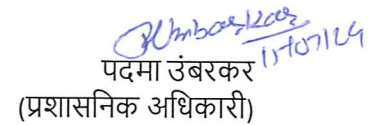 PUmbarkar
11/07/24
पदमा उंबरकर
(प्रशासनिक अधिकारी)